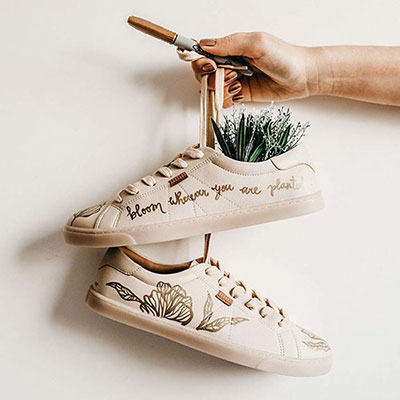 bloom wherever you are planted